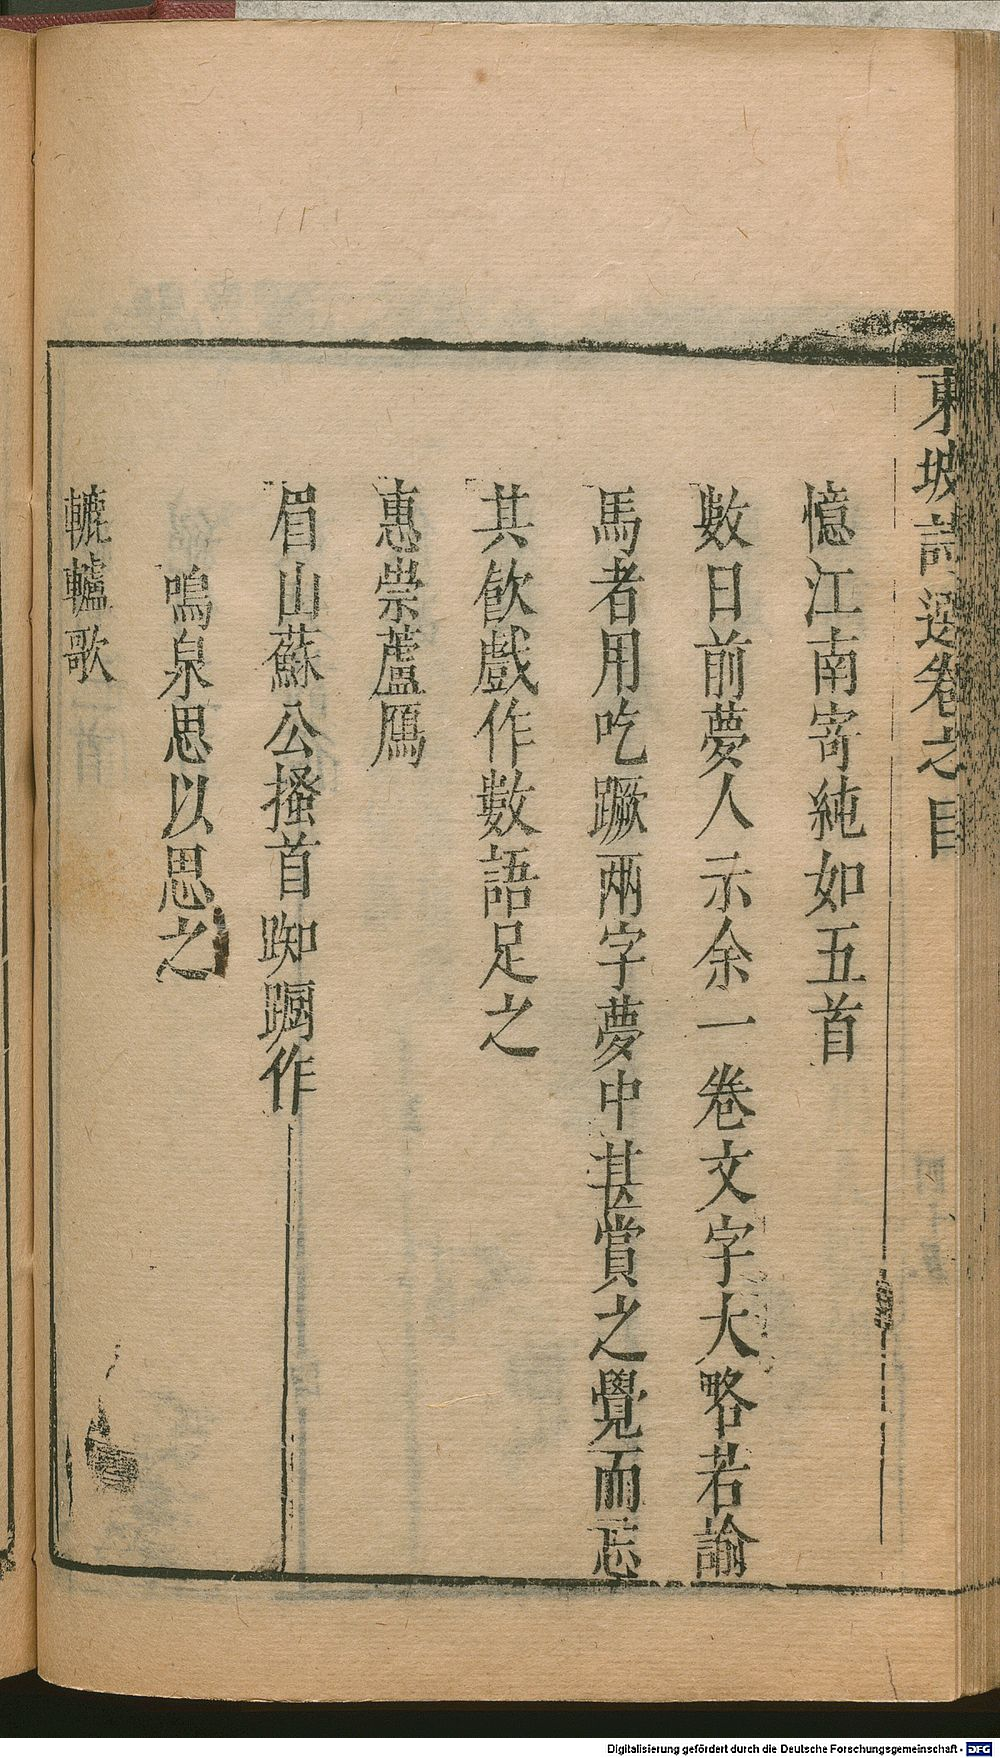 東坡詩選卷之目
憶江南寄純如五首
數日前夢人示余一卷文字大略若諭
馬者用吃蹶兩字夢中甚賞之覺而忘
其飲戲作數語足之
惠崇蘆鴈
眉山蘇公搔首踟躅作
鳴泉思以思之
轆轤歌
Digitalisierung gefördert durch die Deutsche Forschungsgemeinschaft - DFG